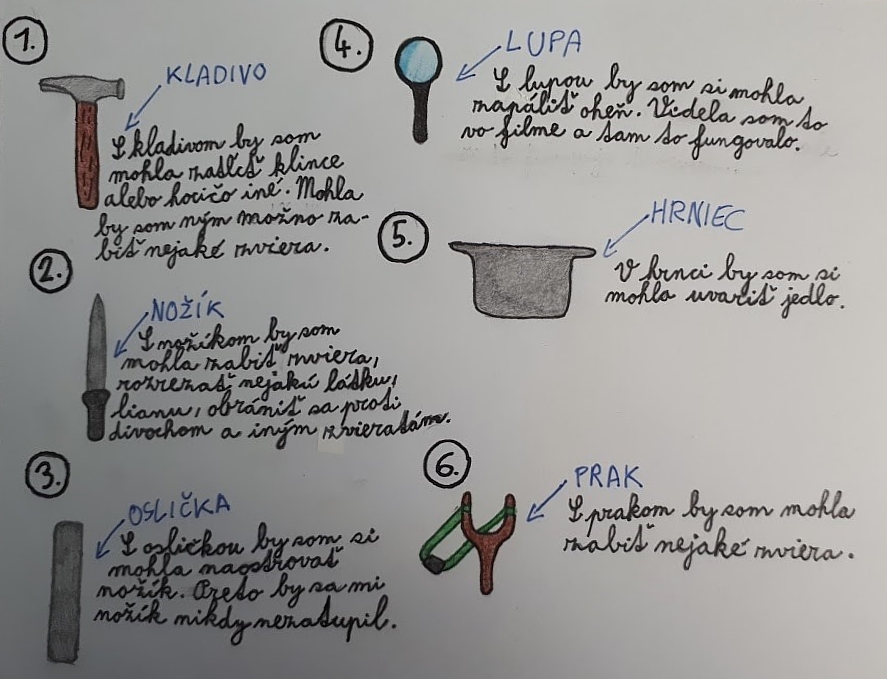 1.
KLADIVO
S kladivom by som
mohla zatĺcť klince
alebo hocičo iné. Mohla
by som ním možno za-
biť nejaké zviera.
2.
NOŽÍK
S nožíkom by som
mohla zabiť zviera,
rozrezať nejakú látku,
lianu, obrániť sa proti
divochom a iným zvieratám.
3.
OSLIČKA
S osličkou by som si
mohla naostrovať
nožík. Preto by sa mi
nožík nikdy nezatupil.
4.
LUPA
S lupou by som si mohla
zapáliť oheň. Videla som to
vo filme a tam to fungovalo.
5.
HRNIEC
V hrnci by som si
mohla uvariť jedlo.
6.
PRAK
S prakom by som mohla
zabiť nejaké zviera.